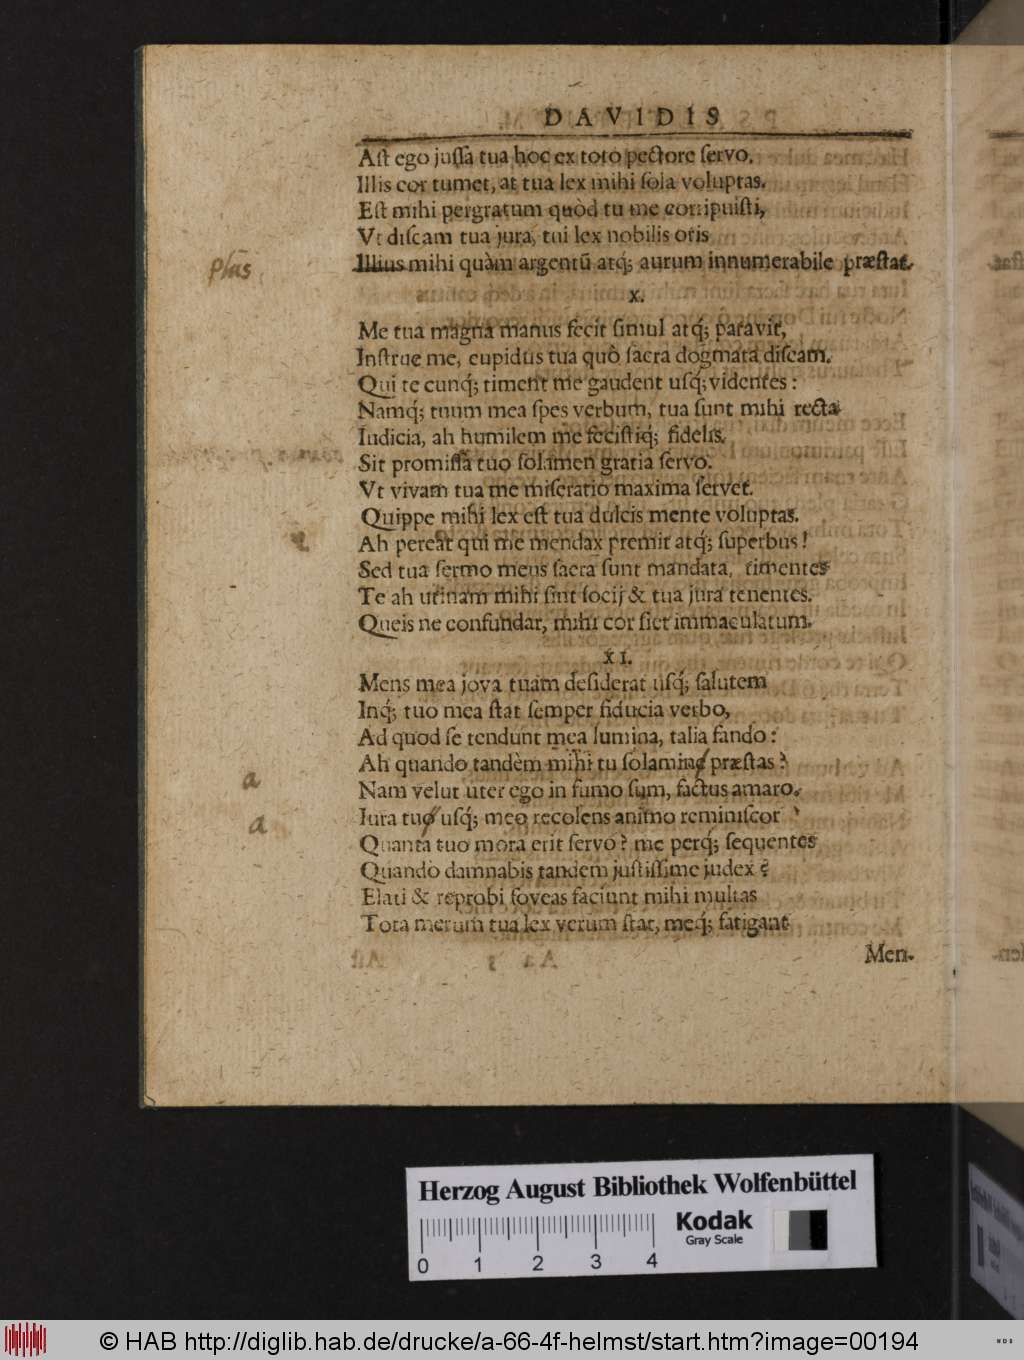 DAVIDIS
Aſt ego juſſa tua hoc ex toto pectore ſervo.
Illis cor tumet, at tua lex mihi ſola voluptas.
Eſt mihi pergratum quòd tu me corripuiſti,
Vt diſcam tua jura, tui lex nobilis oris
Illius mihi quàm argentū atq́; aurum innumerabile præſtat.
Plus
X.
Me tua magna manus fecit ſimul atq́; paravit,
Inſtrue me, cupidus tua quò ſacra dogmata diſcam.
Qui te cunq́; timent me gaudent uſq́; videntes:
Namq́; tuum mea ſpes verbum, tua ſunt mihi recta
Iudicia, ah humilem me feciſtiq́; fidelis.
Sit promiſſa tuo ſolamen gratia ſervo.
Vt vivam tua me miſeratio maxima ſervet.
Quippe mihi lex eſt tua dulcis mente voluptas.
Ah pereat qui me mendax premit atq́; ſuperbus!
Sed tua ſermo meus ſacra ſunt mandata, timentes
Te ah utinam mihi ſint ſocij & tua jura tenentes.
Queis ne confundar, mihi cor fiet immaculatum.
XI.
Mens mea jova tuam deſiderat uſq́; ſalutem
Inq́; tuo mea ſtat ſemper fiducia verbo,
Ad quod ſe tendunt mea lumina, talia fando:
Ah quando tandèm mihi tu ſolamine præſtas?
a
Nam velut uter ego in fumo ſum, factus amaro.
Iura tuo uſq́; meo recolens animo reminiſcor
a
Quanta tuo mora erit ſervo? me perq́; ſequentes
Quando damnabis tandem juſtiſſime judex?
Elati & reprobi foveas faciunt mihi multas
Tota merum tua lex verum ſtat, meq́; fatigant
Men-
Herzog August Bibliothek Wolfenbüttel
Kodak
Gray Scale
0 1 2 3 4
© HAB http://diglib.hab.de/drucke/a-66-4f-helmst/start.htm?image=00194